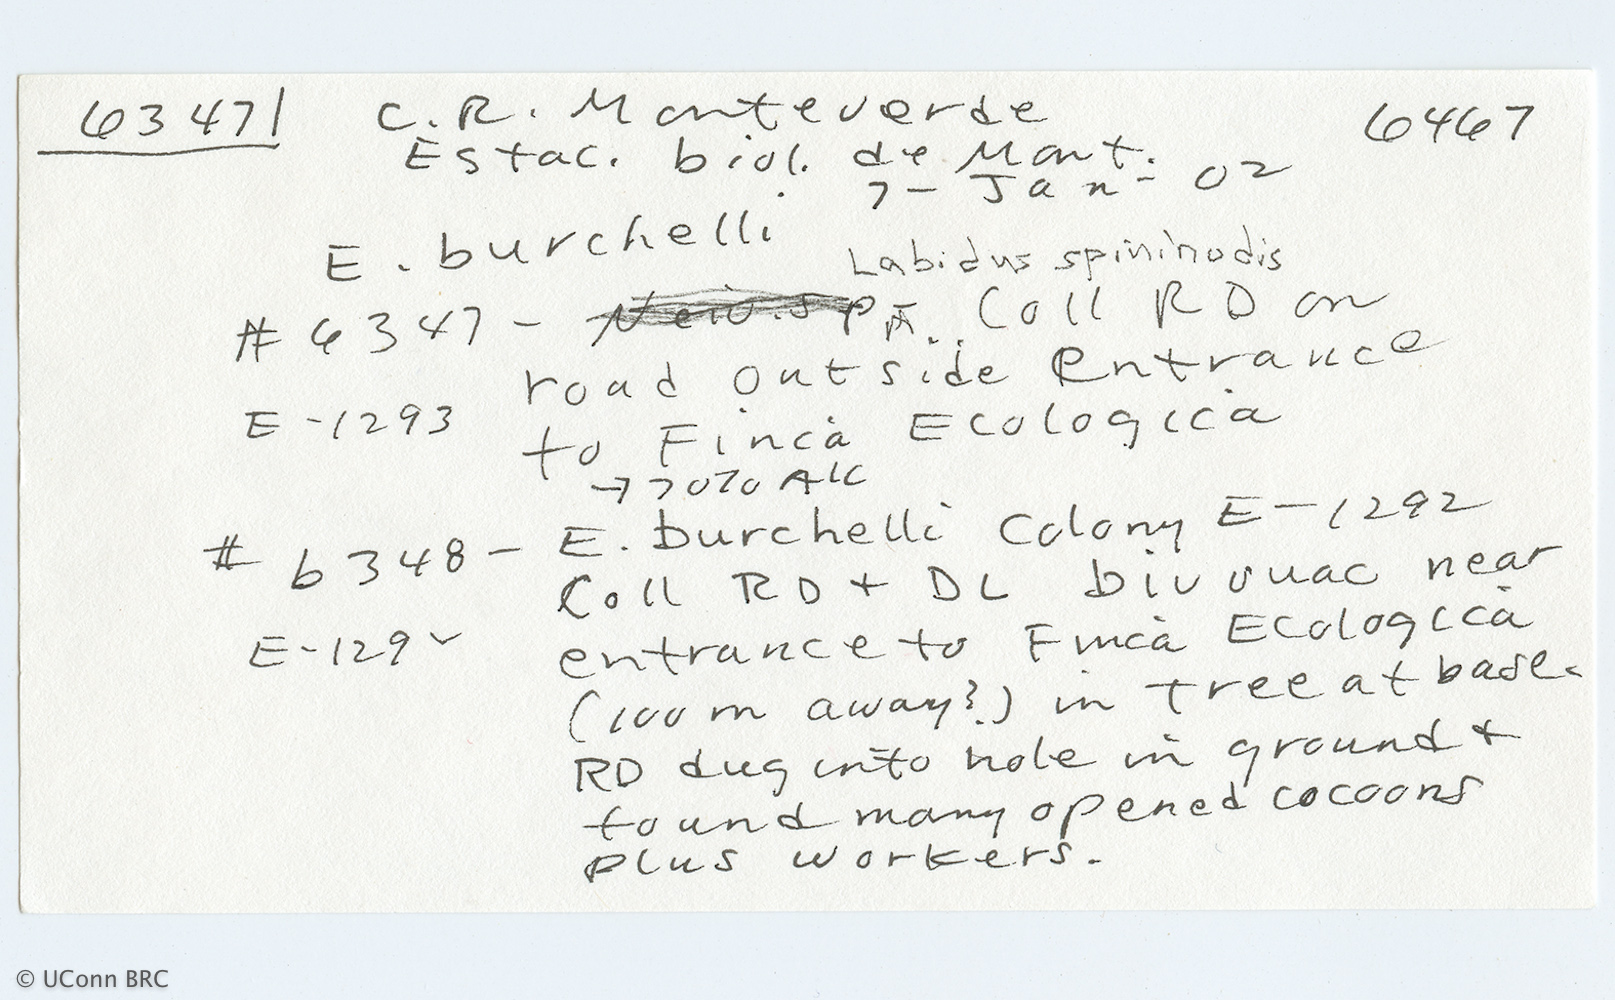 6347 C.R. Monteverde 6467
Estac. biol. de Mont.
7-Jan-02
E. burchelli
Labidus spininodis
#6347 - Neiv. sp A. Coll RD on
road outside entrance
E-1293
to Finca Ecologica
→ 70% Alc
#6348 - E. burchelli Colony E-1292
Coll RD + DL bivouac near
E-1292
entrance to Finca Ecologica
(100 m away?) in tree at base.
RD dug into hole in ground +
found many opened cocoons
plus workers.
© UConn BRC